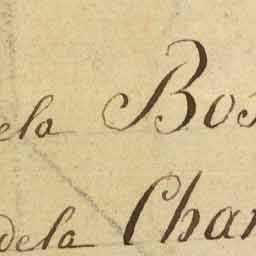 ela Bos
dela Char